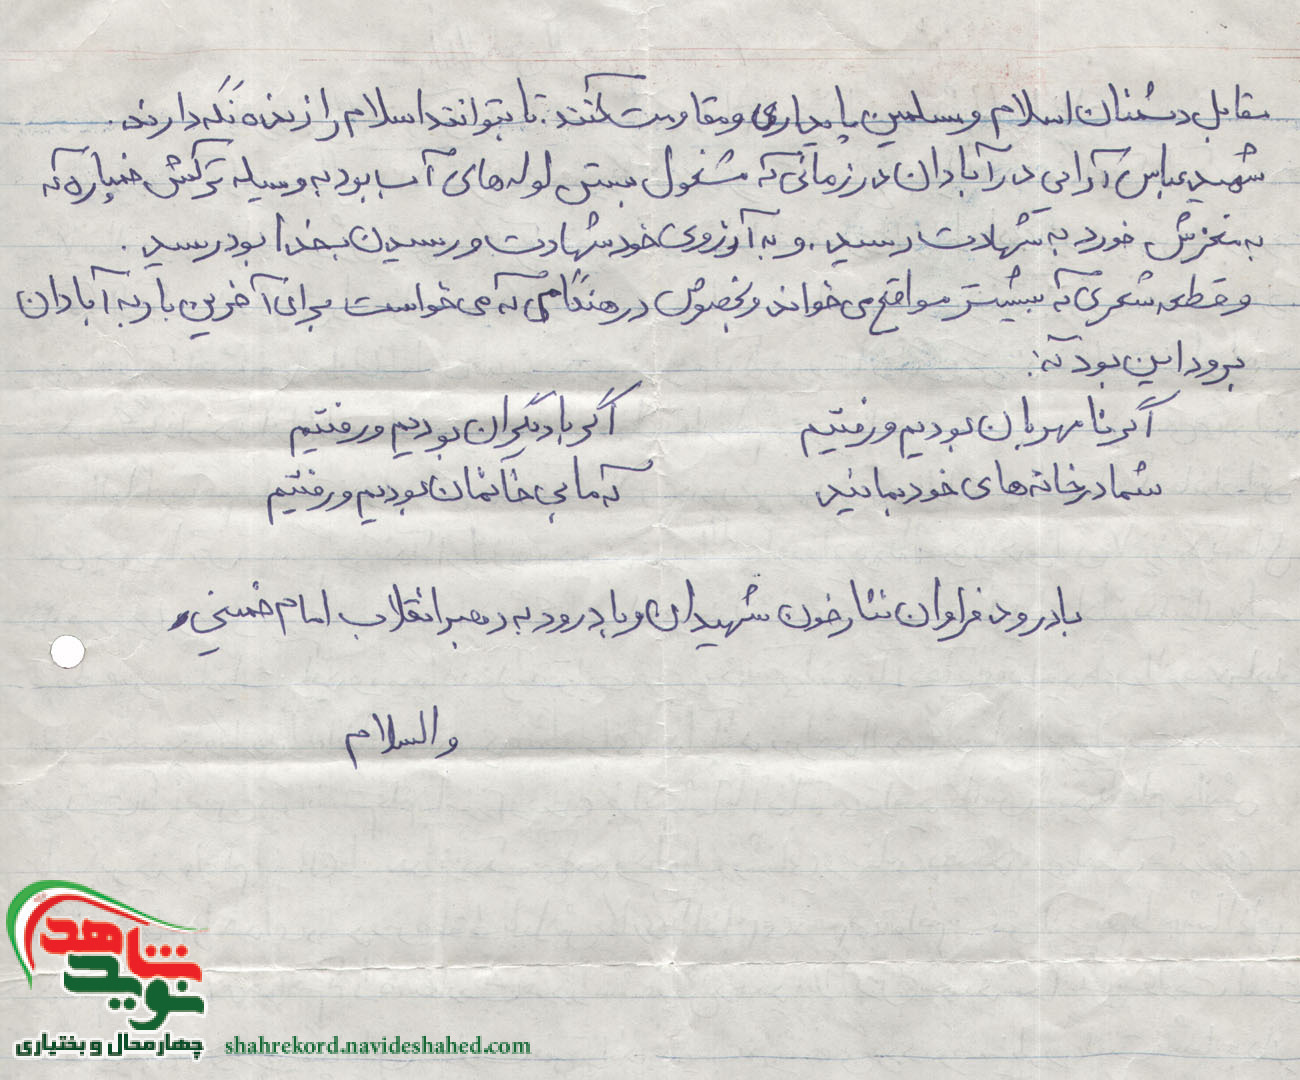 مقابل دشمنان اسلام و مسلمین پایداری و مقاومت کنند. تا بتوانند اسلام را زنده نگه دارند.
شهید عباس آرایی در آبادان در زمانی که مشغول بستن لوله های آب بود به وسیله ترکش خمپاره که
به مغزش خورد به شهادت رسید. و به آرزوی خود شهادت و رسیدن بخدا بود رسید.
و قطعه شعری که بیشتر مواقع می خواند و بخصوص در هنگامی که می خواست برای آخرین بار به آبادان
برود این بود که:
اگر نا مهربان بودیم و رفتیم اگر بار گران بودیم و رفتیم
شما در خانه های خود بمانید که ما بی خانمان بودیم و رفتیم
با درود فراوان نثار خون شهیدان و با درود به رهبر انقلاب امام خمینی
والسلام
نوید شاهد
چهارمحال و بختیاری
shahrekord.navideshahed.com